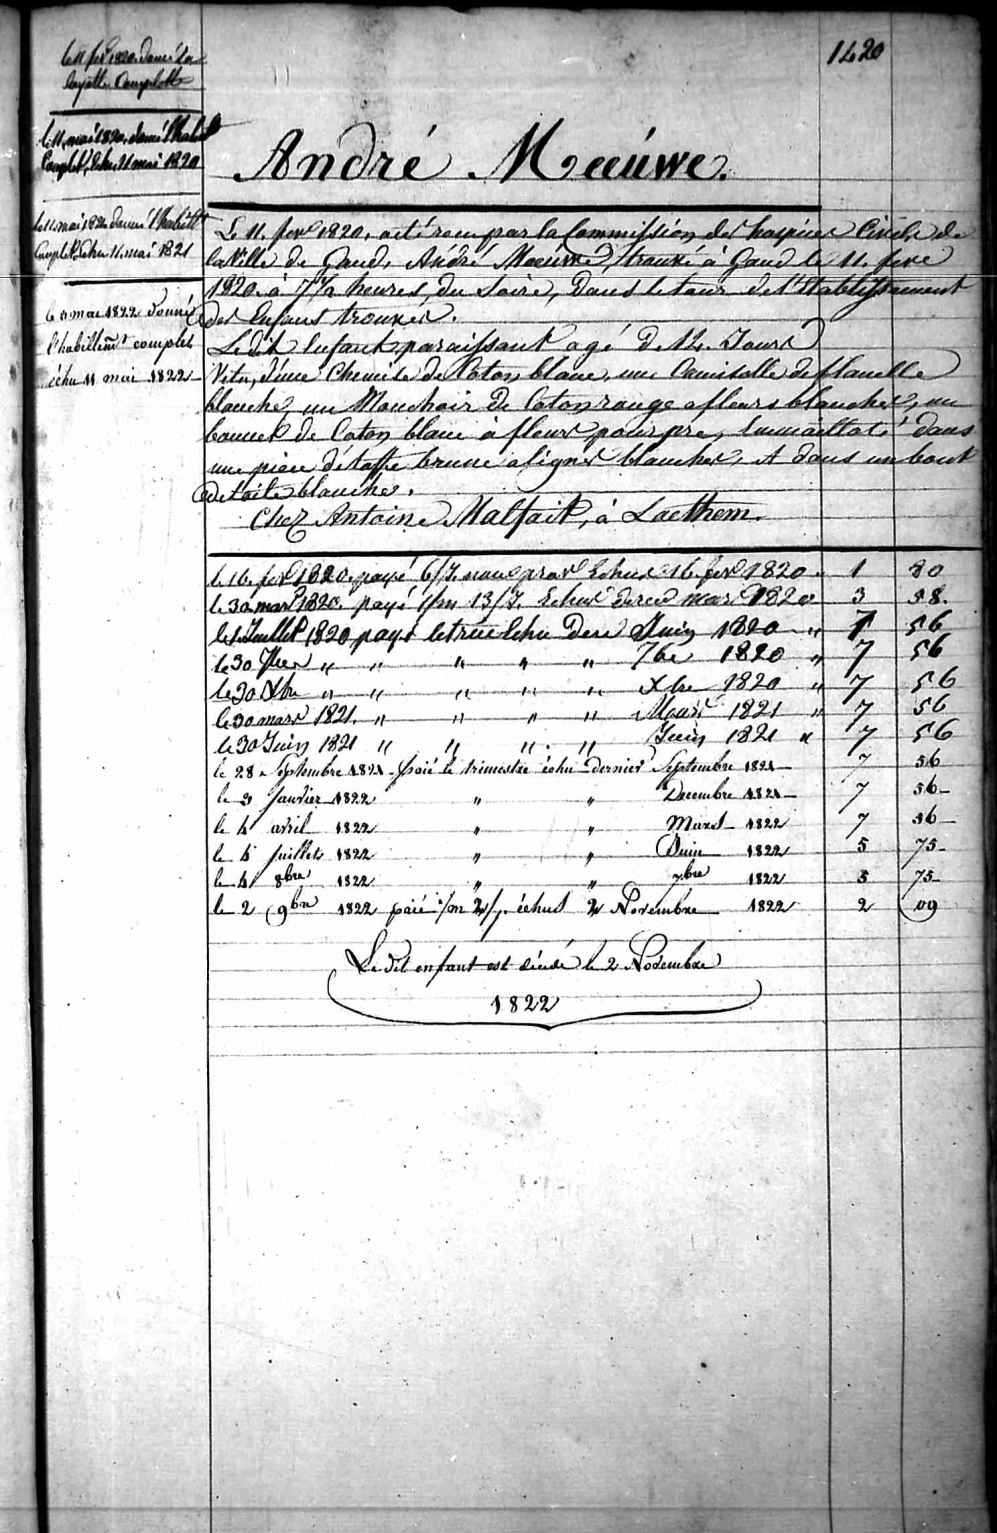 1420
le 11 fevr 1820. donné la
layette Complette
le 11. mai 1820. donné l'habill
Complet, échu 11 mai 1820
le 11. mai 1821 donné l'habillt
Complet, échu 11. mai 1821
le 11 mai 1822 donné
l'habillemt complet
échu 11 mai 1822
André Meeúwe.
Le 11. fevr 1820. a été recu par la Commission des hospices Civils de
la Ville de Gand, André Meeúwe, trouvé à Gand le 11. fevr
1820. à 7 1/2 heures, du Soire, Dans le tour de l'Etablissement
des Enfans trouvés.
Le dit Enfant paraissant agé de 12. Jours
Vetu, d'une Chemise de Coton blanc, une Camisolle de flanelle
blanche, un Mouchoir de Coton rouge a fleurs blanches, un
bonnet de Coton blanc à fleurs pourpre, Emmaillotté dans
une pièce d'étoffe brune a lignes blanches, et dans un bout
de toile blanche.
Chez Antoine Malfait, à Laethem.
le 16 fevr 1820. payé 6/7. nouv Echus 16 fevr 1820 " 1 80
le 30 mars 1820. payé 1/m 13/7. Echus mars 1820 3 58.
le 1 Juillet 1820 payé le tree Echu Der Juin 1820 " 7 56
le 30 7bre " " " " " 7bre 1820 " 7 56
le 30 Xbre " " " " " Xbre 1820 " 7 56
le 30 mars 1821. " " " " Mars 1821 " 7 56
le 30 Juin 1821 " " " " Juin 1821 " 7 56
le 28 Septembre 1821 - paié le trimestre échu dernier Septembre 1821 7 56
le 3 Janvier 1822 " " Decembre 1821 7 56
le 4 avril 1822 " " Mars 1822 7 56
le 4 Juillet 1822 " " Juin 1822 5 75
le 4 8bre 1822 " " 7bre 1822 5 75
le 2 9bre 1822 paié 1/m 2/7. échus 2 Novembre 1822 2 09
Le dit enfant est décédé le 2 Novembre
1822